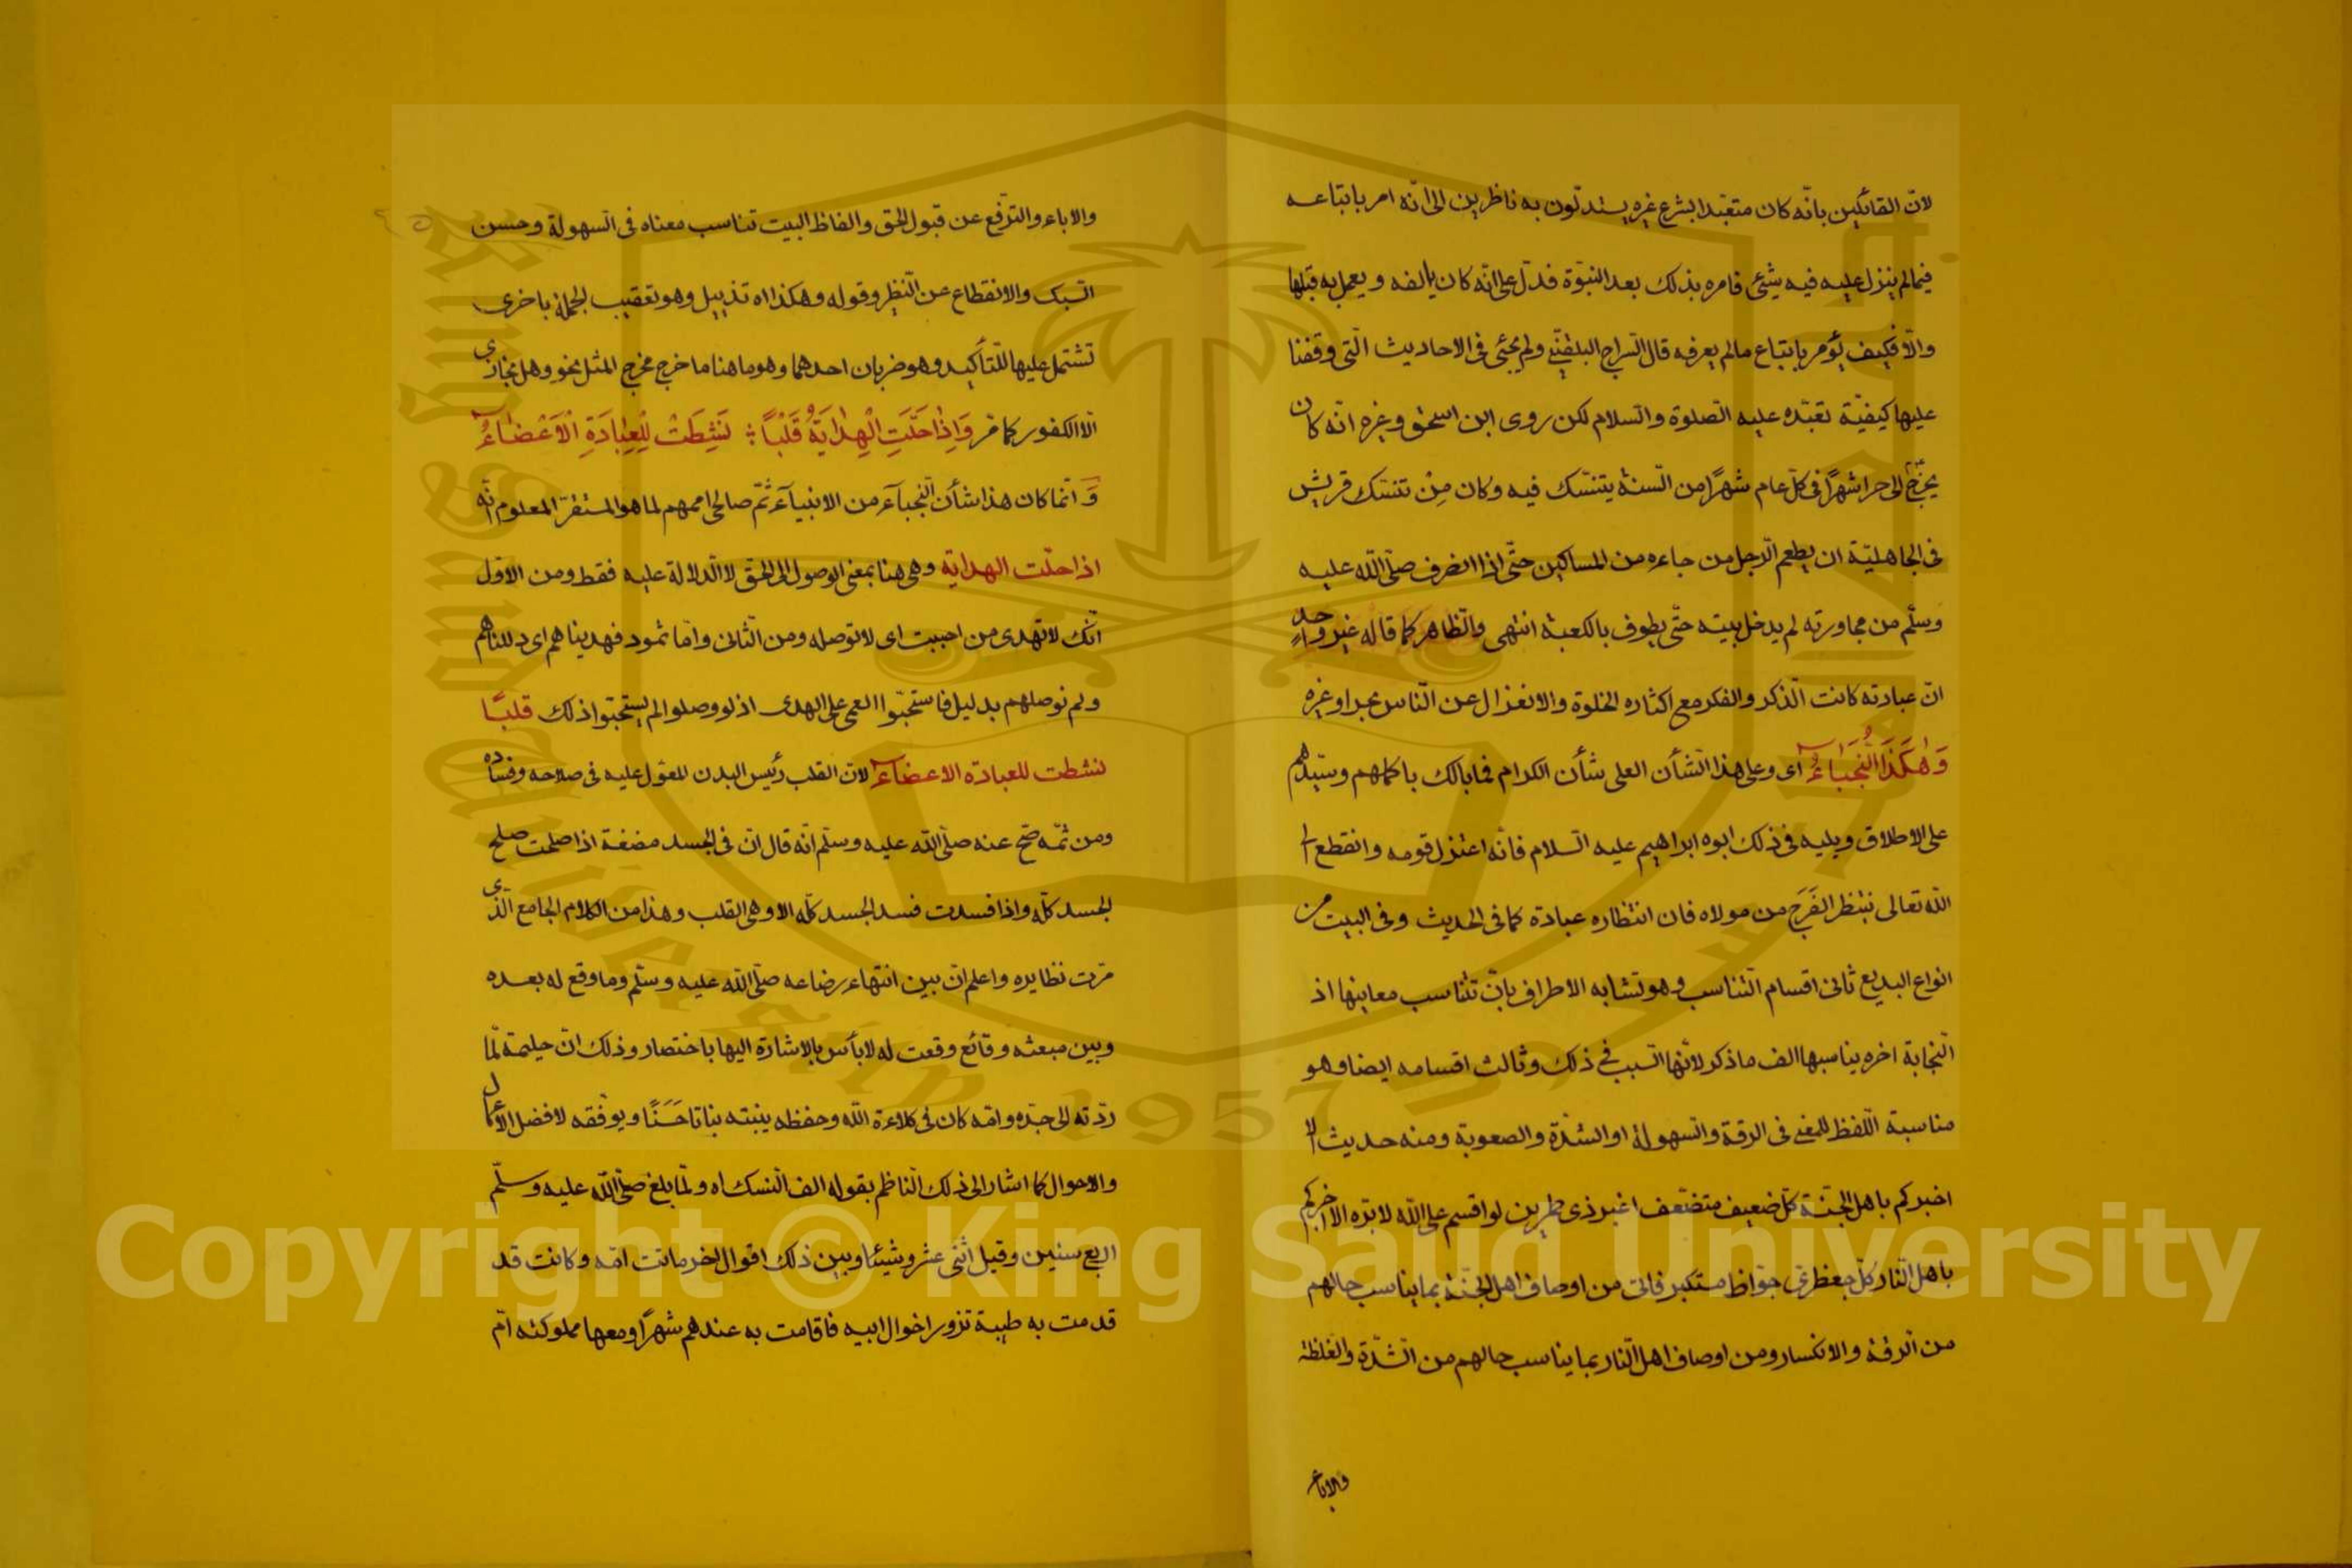 لانّ القائلين بانّه كان متعبّدا بشرع غيره يستدلّون به ناظرين الى انّه امر باتباعه
فيما لم ينزل عليه فيه شيئ فامره بذلك بعد النبوّة فدلّ على انّه كان يالفه ويعمل به قبلها
والّا فكيف يؤمر باتباع ما لم يعرفه قال السّراج البلقينى ولم يجئ فى الاحاديث الّتى وقفنا
عليها كيفيّة تعبّده عليه الصّلوة والسّلام لكن روى ابن اسحٰق وغيره انّه كان
يخرج الى حرا شهرًا فى كلّ عام شهرًا من السّنة يتنسّك فيه وكان مِنْ تنسّك قريش
فى الجاهليّة ان يطعم الرّجل من جاءه من المساكين حتّى اذا انصرف صلّى اللّه عليه
وسلّم من مجاورته لم يدخل بيته حتّى يطوف بالكعبة انتهى والظّاهر كما قاله غير واحدٍ
انّ عبادته كانت الذّكر والفكر مع اكثاره الخلوة والانعزال عن النّاس بحرا وغيره
وَهٰكَذَا النُّجَبَاءُ اى وعلى هذا الشّأن العلى شأن الكرام فما بالك باكملهم وسيّدهم
على الاطلاق ويليه فى ذلك ابوه ابراهيم عليه السّلام فانّه اعتزل قومه وانقطع الى
اللّه تعالى ينتظر الفَرَجَ من مولاه فان انتظاره عبادة كما فى الحديث وفى البيت من
انواع البديع ثانى اقسام التّناسب وهو تشابه الاطراف بان تتناسب معانيها اذ
النّجابة اخره يناسبها الف ما ذكر لانّها السّبب فى ذلك وثالث اقسامه ايضا وهو
مناسبة اللّفظ للمعنى فى الرقة والسّهولة او الشدّة والصعوبة ومنه حديث الا
اخبركم باهل الجنّة كلّ ضعيف متضعّف اغبر ذى طمرين لو اقسم على اللّه لابرّه الا اخبركم
باهل النّار كلّ جعظرىّ جوّاظ مستكبر فاتى من اوصاف اهل الجنّة بما يناسب حالهم
من الرقة والانكسار ومن اوصاف اهل النّار بما يناسب حالهم من الشّدّة والغلظة
والاباء
والاباء والترّفع عن قبول الحق والفاظ البيت تناسب معناه فى السّهولة وحسن
السّبك والانقطاع عن النّظير وقوله وهكذا اه تذييل وهو تعقيب الجملة باخرى
تشتمل عليها للتّأكيد وهو ضربان احدهما وهو ما هنا ما خرج مخرج المثل نحو وهل نجازى
الّا الكفور كما مّر وَاِذَا حَلَّتِ الْهِدَايَةُ قَلْبًا ؛ نَشِطَتْ لِلْعِبَادَةِ الْاَعْضَاءُ
وَ انّما كان هذا شأن النّجباء من الانبياء ثمّ صالحى اممهم لما هو المستقرّ المعلوم انّه
اذا حلّت الهداية وهى هنا بمعنى الوصول الى الحق لا الدّلالة عليه فقط ومن الاوّل
انّك لا تهدى من احببت اى لا توصله ومن الثّانى وامّا ثمود فهديناهم اى دللناهم
ولم نوصلهم بدليل فاستحبّوا العمى على الهدى اذ لو وصلوا لم يستحبّوا ذلك قلبًا
نشطت للعبادة الاعضاء لانّ القلب رئيس البدن المعوّل عليه فى صلاحه وفساده
ومن ثمّه صحّ عنه صلّى اللّه عليه وسلّم انّه قال انّ فى الجسد مضغة اذا صلحت صلح
الجسد كلّه واذا فسدت فسد الجسد كلّه الا وهى القلب وهذا من الكلام الجامع الّذى
مرّت نظايره واعلم انّ بين انتهاء رضاعه صلّى اللّه عليه وسلّم وما وقع له بعده
وبين مبعثه وقائع وقعت له لا بأس بالاشارة اليها باختصار وذلك انّ حليمة لمّا
ردّته الى جدّه وامّه كان فى كلاءة اللّه وحفظه ينبته نباتا حَسَنًا ويوفّقه لافضل الاعمال
والاحوال كما اشار الى ذلك النّاظم بقوله الف النّسك اه ولمّا بلغ صلّى اللّه عليه وسلّم
اربع سنين وقيل اثنى عشر وشيئا وبين ذلك اقوال اخر ماتت امّه وكانت قد
قدمت به طيبة تزور اخوال ابيه فاقامت به عندهم شهرًا ومعها مملوكته امّ
King Saud University
1957
Copyright © King Saud University